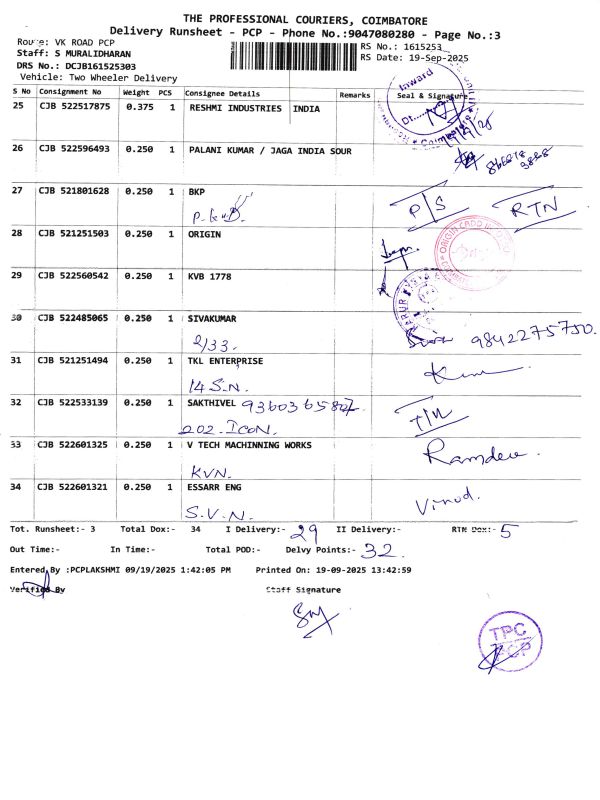 THE PROFESSIONAL COURIERS, COIMBATORE
Delivery Runsheet - PCP - Phone No.:9047080280 - Page No.:3
Route: VK ROAD PCP
Staff: S MURALIDHARAN
DRS No.: DCJB161525303
Vehicle: Two Wheeler Delivery
RS No.: 1615253
RS Date: 19-Sep-2025
S No Consignment No Weight PCS Consignee Details Remarks Seal & Signature
25 CJB 522517875 0.375 1 RESHMI INDUSTRIES INDIA
Inward
26 CJB 522596493 0.250 1 PALANI KUMAR / JAGA INDIA SOUR
27 CJB 521801628 0.250 1 BKP
P/S RTN
28 CJB 521251503 0.250 1 ORIGIN
29 CJB 522560542 0.250 1 KVB 1778
30 CJB 522485065 0.250 1 SIVAKUMAR
2/33. 9842275750.
31 CJB 521251494 0.250 1 TKL ENTERPRISE
14 S.N.
32 CJB 522533139 0.250 1 SAKTHIVEL
202. ICON.
33 CJB 522601325 0.250 1 V TECH MACHINNING WORKS
KVN. Ramdev
34 CJB 522601321 0.250 1 ESSARR ENG
S.V.N. Vinod.
Tot. Runsheet:- 3 Total Dox:- 34 I Delivery:- 29 II Delivery:- RTN Dox:- 5
Out Time:- In Time:- Total POD:- Delvy Points:- 32.
Entered By :PCPLAKSHMI 09/19/2025 1:42:05 PM Printed On: 19-09-2025 13:42:59
Verified By Staff Signature
TPC
PCP